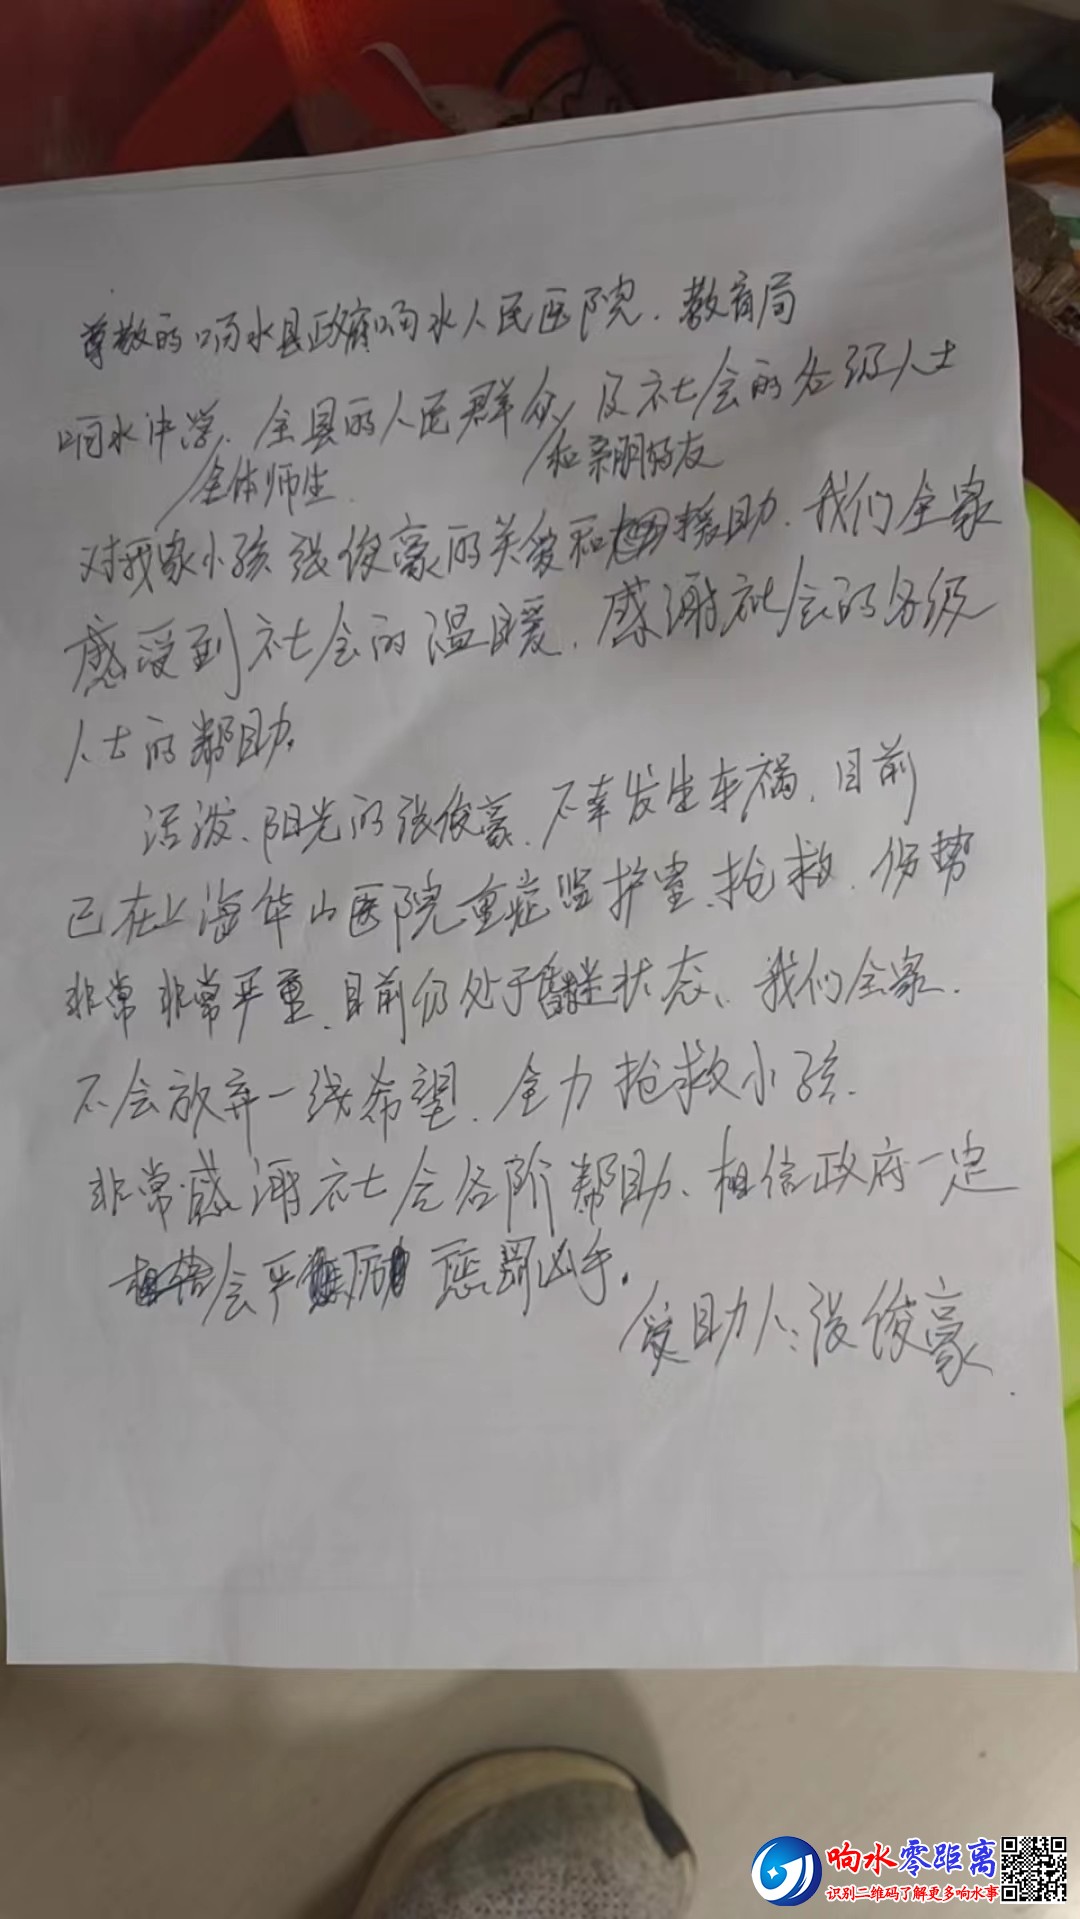 尊敬的响水县政府响水人民医院、教育局
响水中学、全县的人民群众及社会的各级人士
全体师生
和亲朋好友
对我家小孩张俊豪的关爱和援助、我们全家
感受到社会的温暖、感谢社会的各级
人士的帮助。
活泼、阳光的张俊豪、不幸发生车祸、目前
已在上海华山医院重症监护室、抢救、伤势
非常非常严重、目前仍处于状态、我们全家、
不会放弃一线希望、全力抢救小孩、
非常感谢社会各阶帮助、相信政府一定
会严厉惩罚凶手。
受助人:张俊豪
响水零距离
识别二维码了解更多响水事